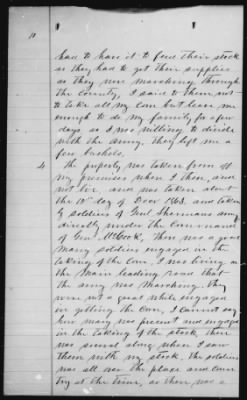 11
had to have it to feed their stock
as they had to get their supplies
as they were marching through
the country, I said to them not
to take all my corn but leave me
enough to do my family for a few
days as I was willing to divide
with the army, they left me a
few bushels.
4 The property was taken from off
my premises where I then, and
not live, and was taken about
the 10th day of Decr 1863. and taken
by soldiers of Genl Shermans army
directly under the command
of Gen McCook, there was a good
many soldiers engaged in the
taking of the corn, I was living on
the main leading road that
the army was marching. they
were not a great while engaged
in getting the corn, I cannot say
how many was present and engaged
in the taking of the stock there
was several along when I saw
them with my stock. the soldiers
was all over the place and coun
try at the time, as there was a